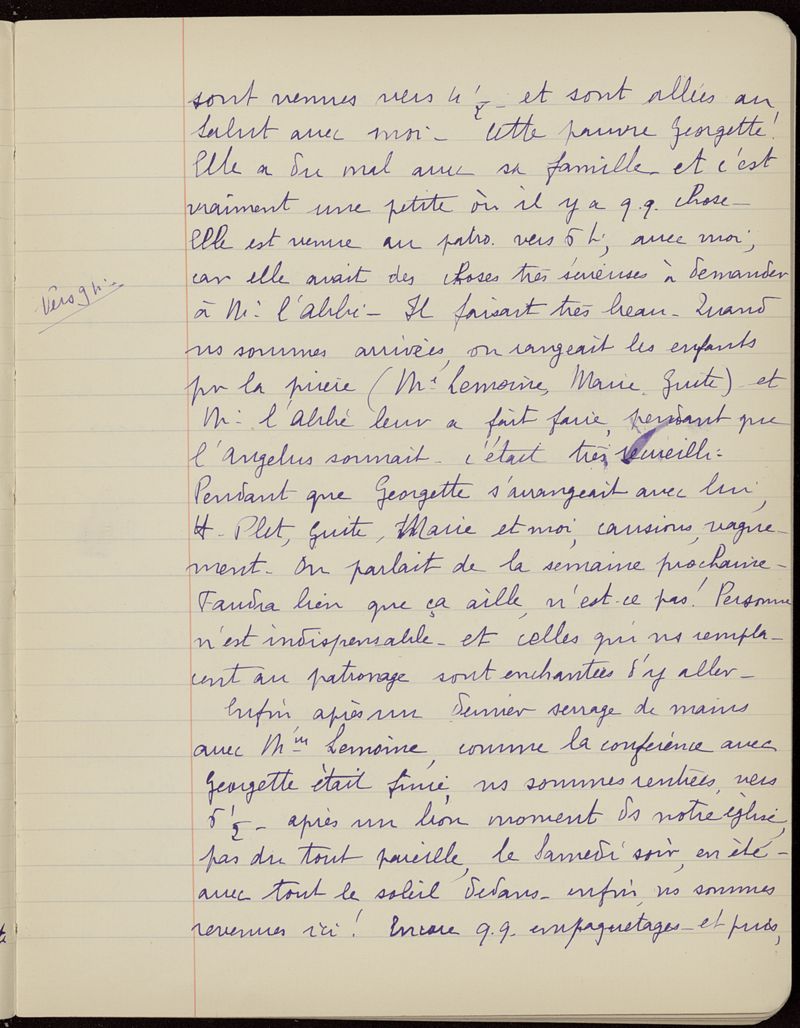 sont venues vers 4 1/2 - et sont allées au
Salut avec moi - Cette pauvre Georgette !
Elle a du mal avec sa famille - et c'est
vraiment une petite où il y a q.q. chose -
Elle est venue au patro. vers 5 h, avec moi,
car elle avait des choses très sérieuses à demander
Vers 9 h. -
à Mr l'abbé - Il faisait très beau - Quand
ns sommes arrivées, on rangeait les enfants
pr la prière (Me Lemoine, Marie, Guite) et
Mr l'Abbé leur a fait faire, pendant que
l'Angelus sonnait - c'était très recueilli -
Pendant que Georgette s'arrangeait avec lui,
H. Plet, Guite, Marie et moi, causions, vague-
ment - On parlait de la semaine prochaine -
Faudra bien que ça aille, n'est-ce pas ! Personne
n'est indispensable - et celles qui ns rempla-
cent au patronage sont enchantées d'y aller -
Enfin après un dernier serrage de mains
avec Mme Lemoine, comme la conférence avec
Georgette était finie, ns sommes rentrées, vers
5 1/2 - après un bon moment ds notre église,
pas du tout pareille, le Samedi soir, en été -
avec tout le soleil dedans - enfin, ns sommes
revenues ici ! Encore q.q. empaquetages - et puis,